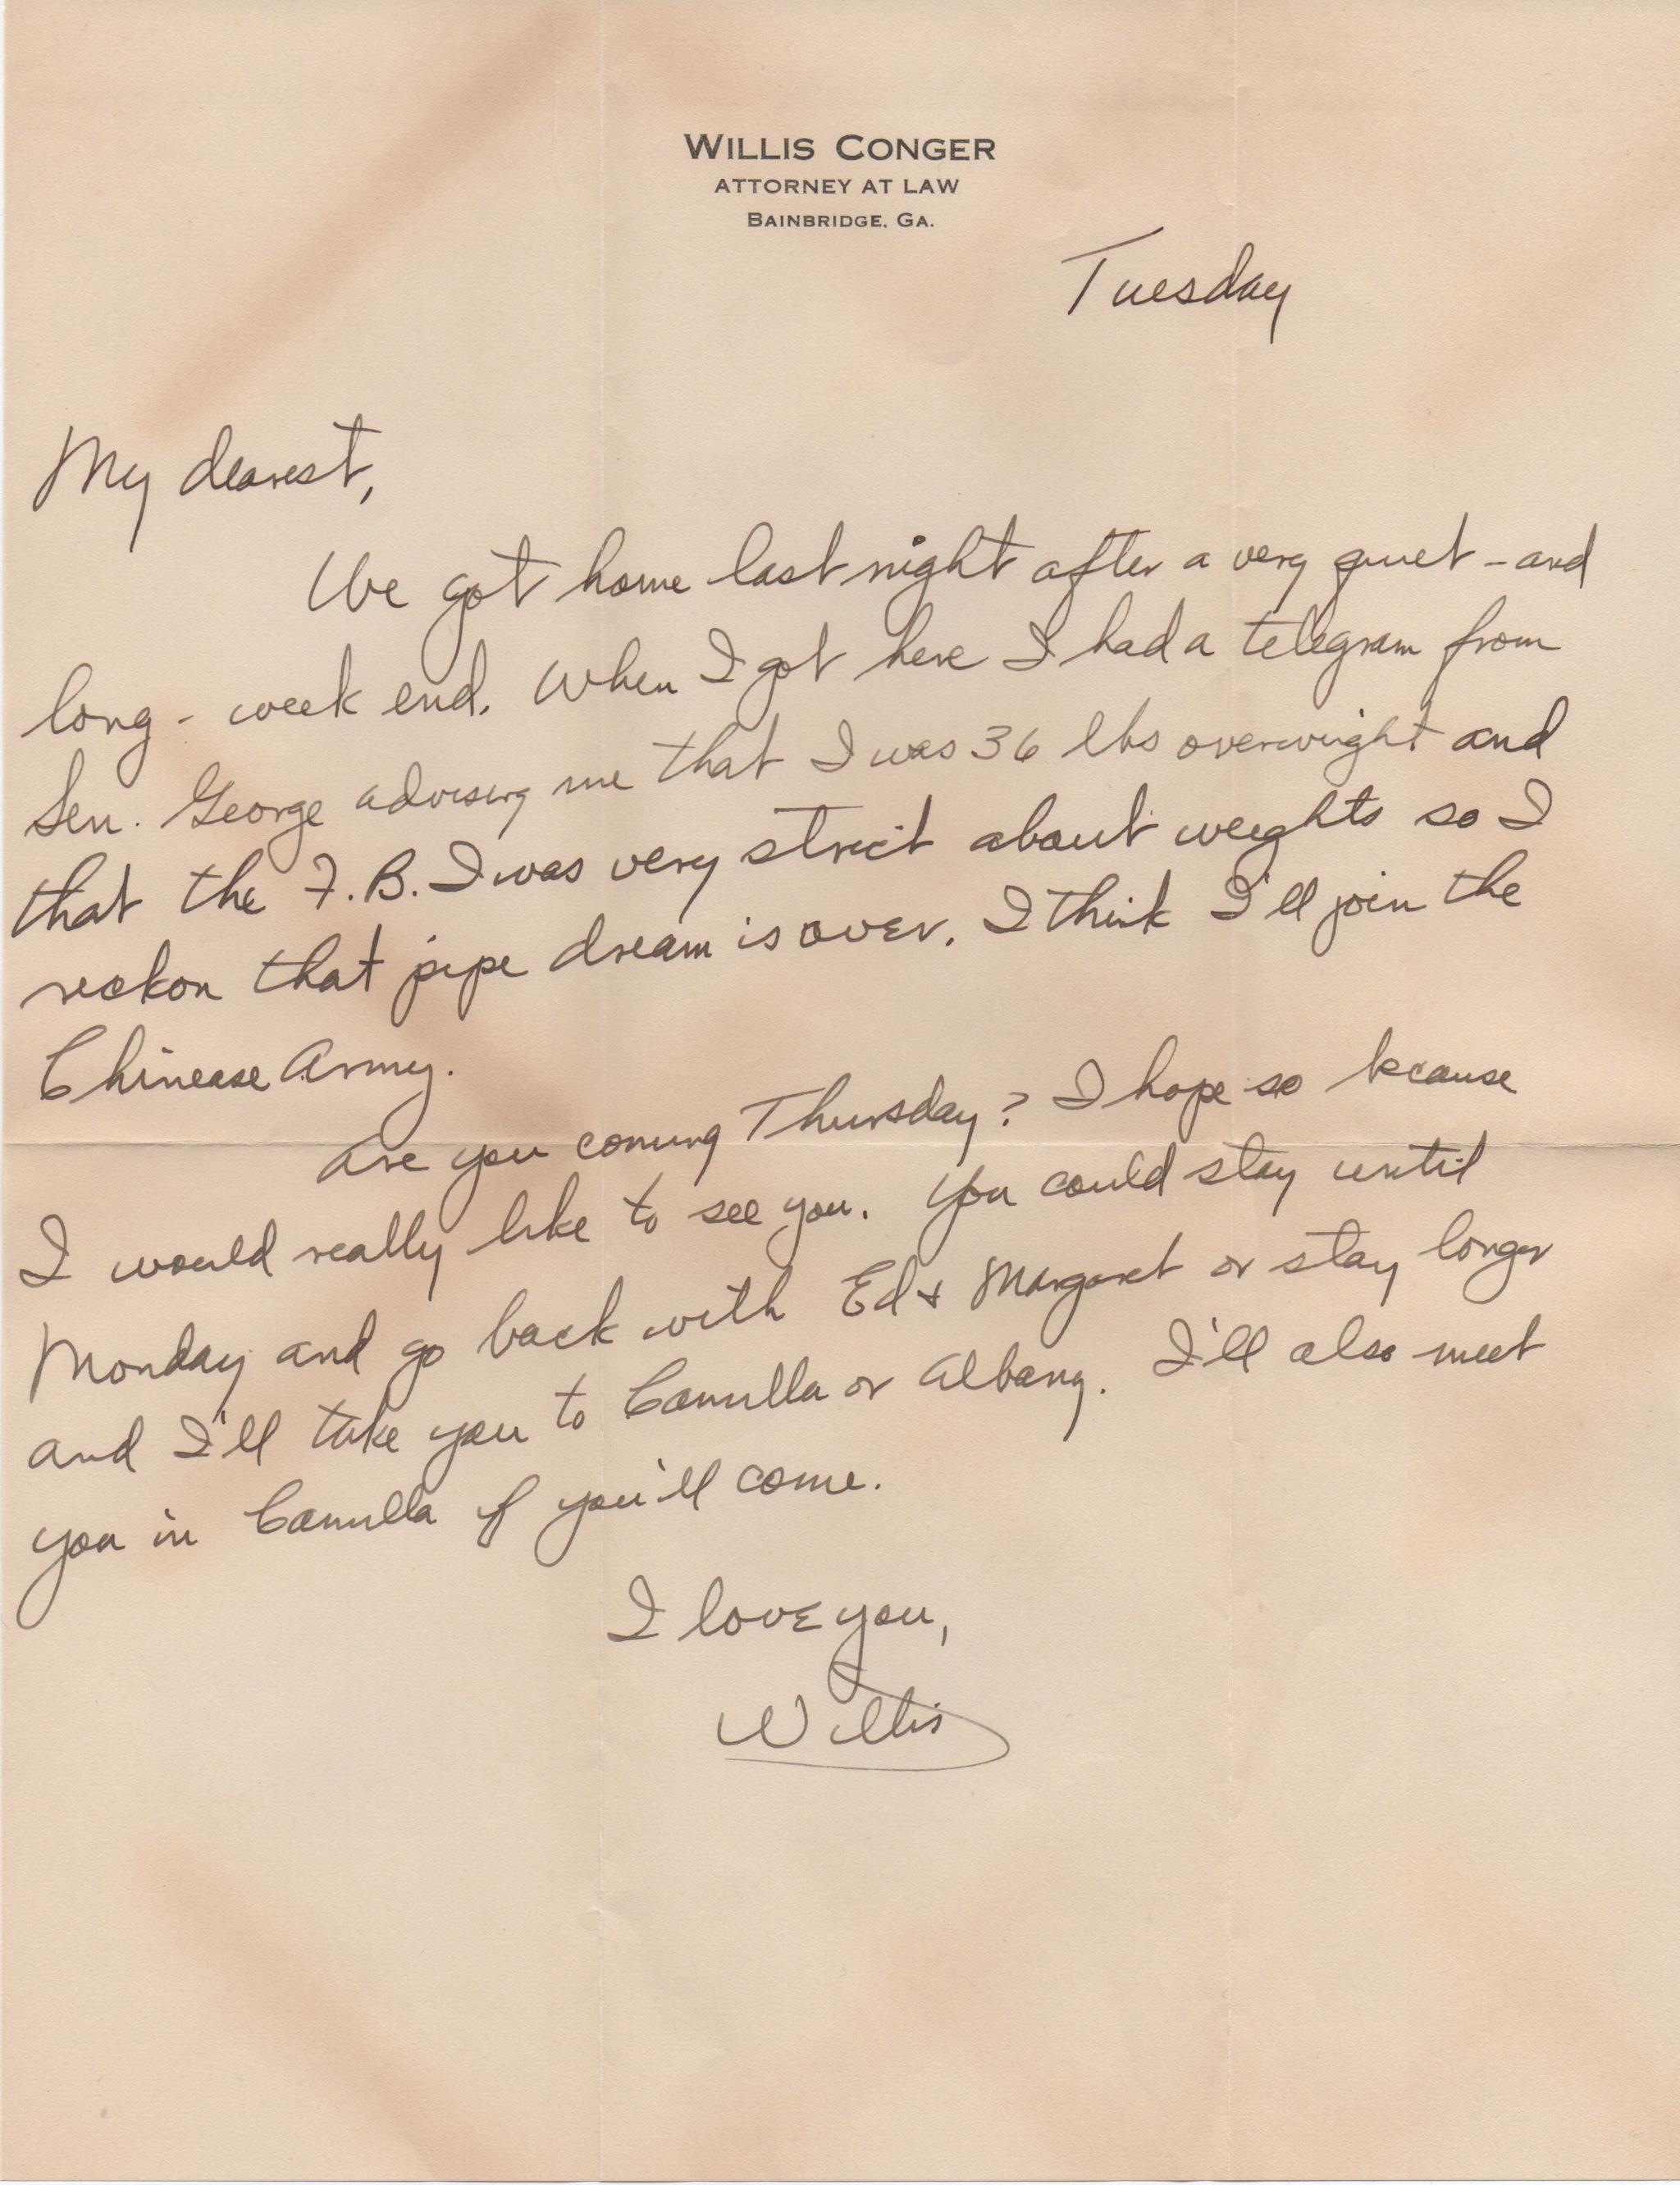 WILLIS CONGER
ATTORNEY AT LAW
BAINBRIDGE, GA.
Tuesday
My dearest,
We got home last night after a very quiet - and
long - week end. When I got here I had a telegram from
Sen. George advising me that I was 36 lbs overweight and
that the F.B.I was very strict about weights so I
reckon that pipe dream is over. I think I'll join the
Chinease Army.
Are you coming Thursday? I hope so because
I would really like to see you. You could stay until
Monday and go back with Ed & Margaret or stay longer
and I'll take you to Camilla or Albany. I'll also meet
you in Camilla if you'll come.
I love you,
Willis